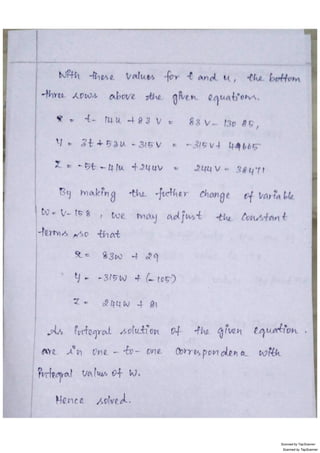 With these values for t and u, the bottom
three rows above the given equations.
x = t - 14u + 83 v = 83 v - 130 85,
y = 3t + 53u - 315v = -315v + 49665
z = -5t - 41u + 244v = 244v - 38471
By making the further change of variable
w = v - 158, we may adjust the constant
terms so that
x = 83w + 29
y = -315w + (-105)
z = 244w + 81
As integral solution of the given equation.
are in one - to - one correspondence with
integral values of w.
Hence solved.
Scanned by TapScanner
Scanned by TapScanner